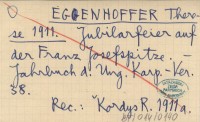 EGGENHOFFER There-
se 1911. Jubilarfeier auf
der Franz Josefspitze. -
Jahrbuch d. Ung. Karp. Ver.
38.
Rec.: Kordys R. 1911a.